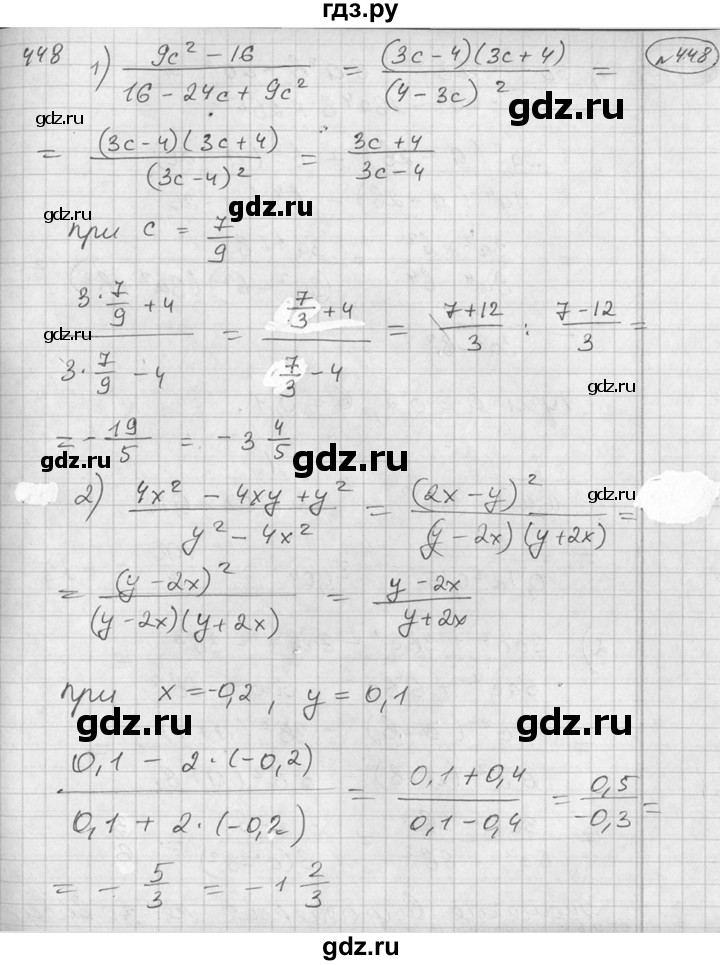 гдз.ру
448 1) (9c² - 16)/(16 - 24c + 9c²) = ((3c - 4)(3c + 4))/((4 - 3c)²) = №448
gdz.ru gdz.ru
= ((3c - 4)(3c + 4))/((3c - 4)²) = (3c + 4)/(3c - 4)
gdz.ru gdz.ru
при c = 7/9
(3·7/9 + 4)/(3·7/9 - 4) = (7/3 + 4)/(7/3 - 4) = (7 + 12)/3 : (7 - 12)/3 =
gdz.ru gdz.ru
= - 19/5 = - 3 4/5
gdz.ru gdz.ru
2) (4x² - 4xy + y²)/(y² - 4x²) = ((2x - y)²)/((y - 2x)(y + 2x)) =
gdz.ru
= ((y - 2x)²)/((y - 2x)(y + 2x)) = (y - 2x)/(y + 2x)
при x = -0,2, y = 0,1
gdz.ru gdz.ru
(0,1 - 2·(-0,2))/(0,1 + 2·(-0,2)) = (0,1 + 0,4)/(0,1 - 0,4) = 0,5/-0,3 =
= - 5/3 = - 1 2/3
gdz.ru